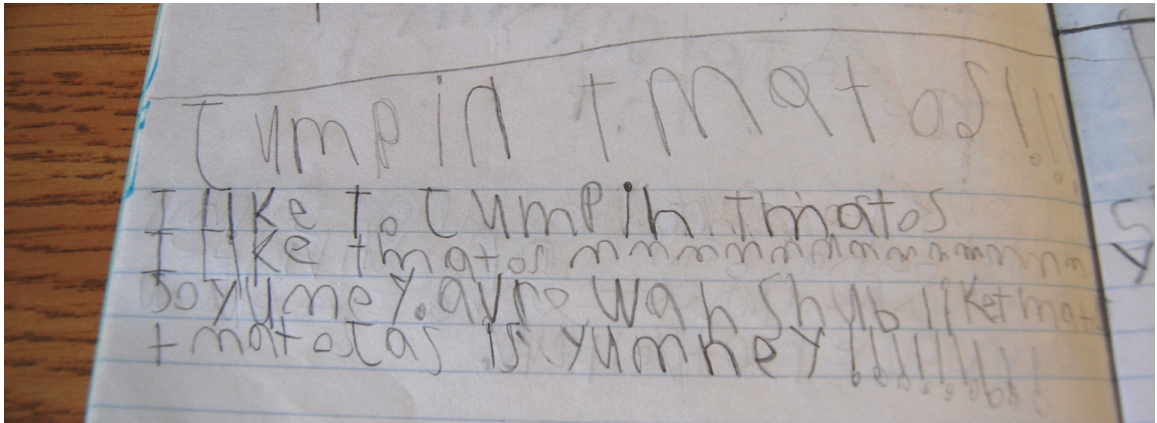 Jumpin tmatos!!!
I like to Jumpin tmatos
I like tmatos mmmmmmmmmmmmmm
So yumey. avro wan shub like tmatos
tmatostas is yumney!!!!!!!!!!